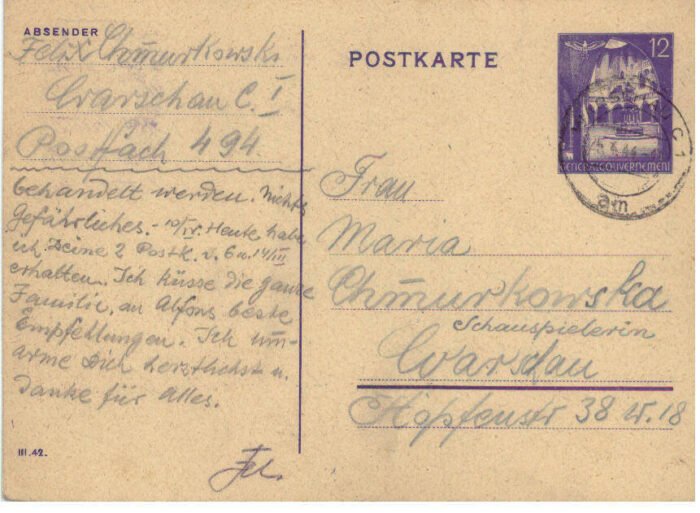 ABSENDER
Felix Chmurkowski
Warschau C. I
Postfach 494.
behandelt werden. Nichts
gefährliches. - 10/IV. Heute habe
ich Deine 2 Postk. v. 6 u. 14/III
erhalten. Ich küsse die ganze
Familie, an Alfons beste
Empfehlungen. Ich um-
arme Dich herzlichst u.
danke für Alles.
Fel.
III.42.
POSTKARTE
12
GENERALGOUVERNEMENT
C1
am
Frau
Maria
Chmurkowska
Schauspielerin
Warschau
Hopfenstr 38 W. 18